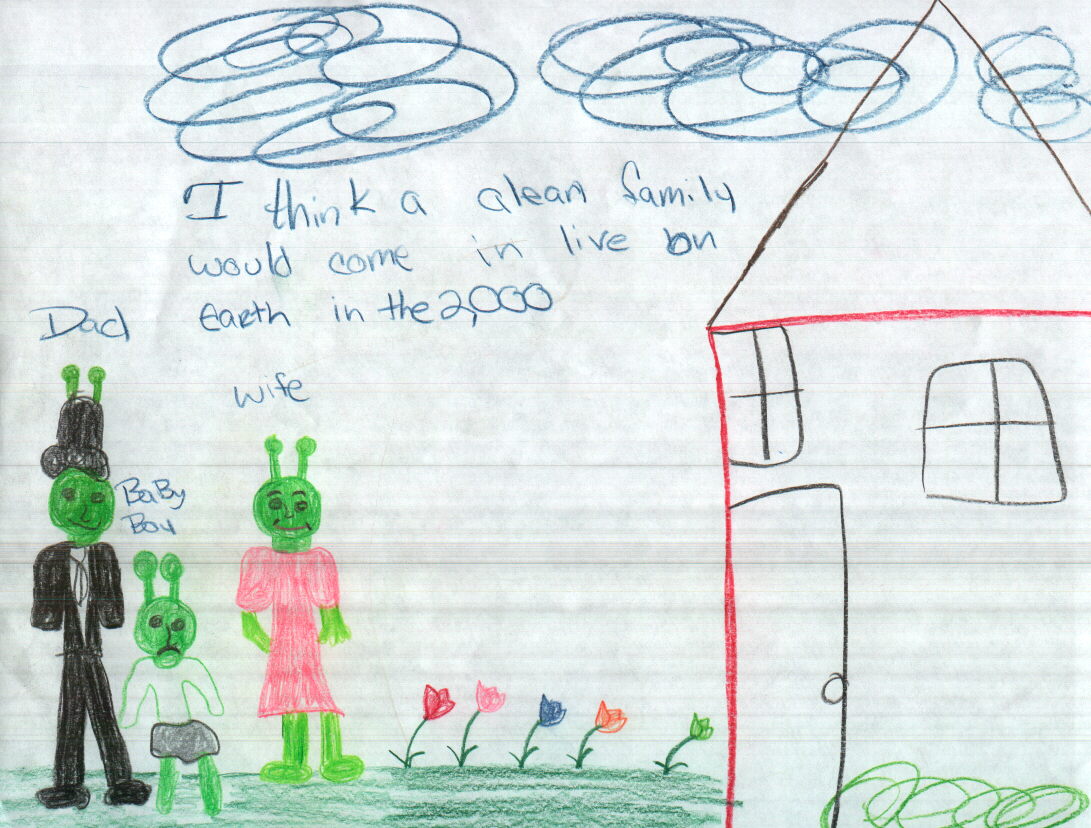 I think a alean family
would come in live on
Earth in the 2,000
Dad
wife
BaBy
Boy